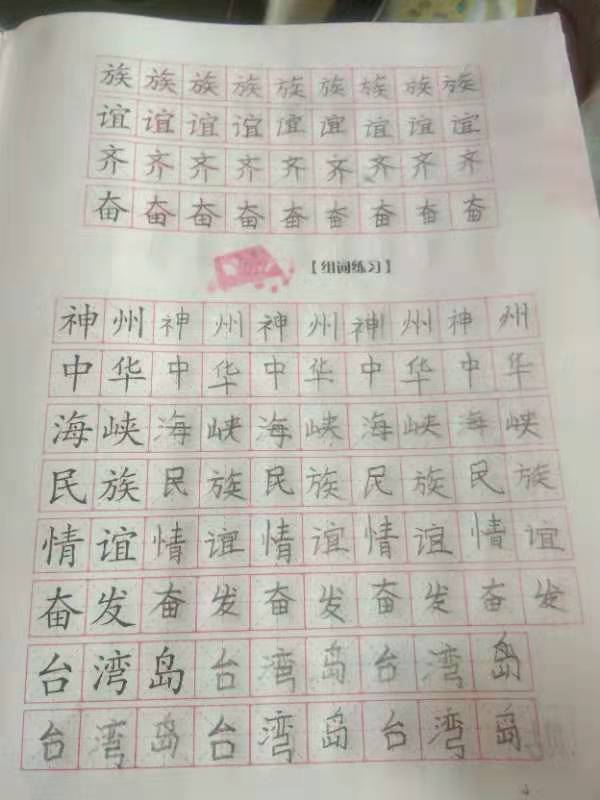 族族族族族族族族族
谊谊谊谊谊谊谊谊谊
齐齐齐齐齐齐齐齐齐
奋奋奋奋奋奋奋奋奋
【组词练习】
神州神州神州神州神州
中华中华中华中华中华
海峡海峡海峡海峡海峡
民族民族民族民族民族
情谊情谊情谊情谊情谊
奋发奋发奋发奋发奋发
台湾岛台湾岛台湾岛
台湾岛台湾岛台湾岛